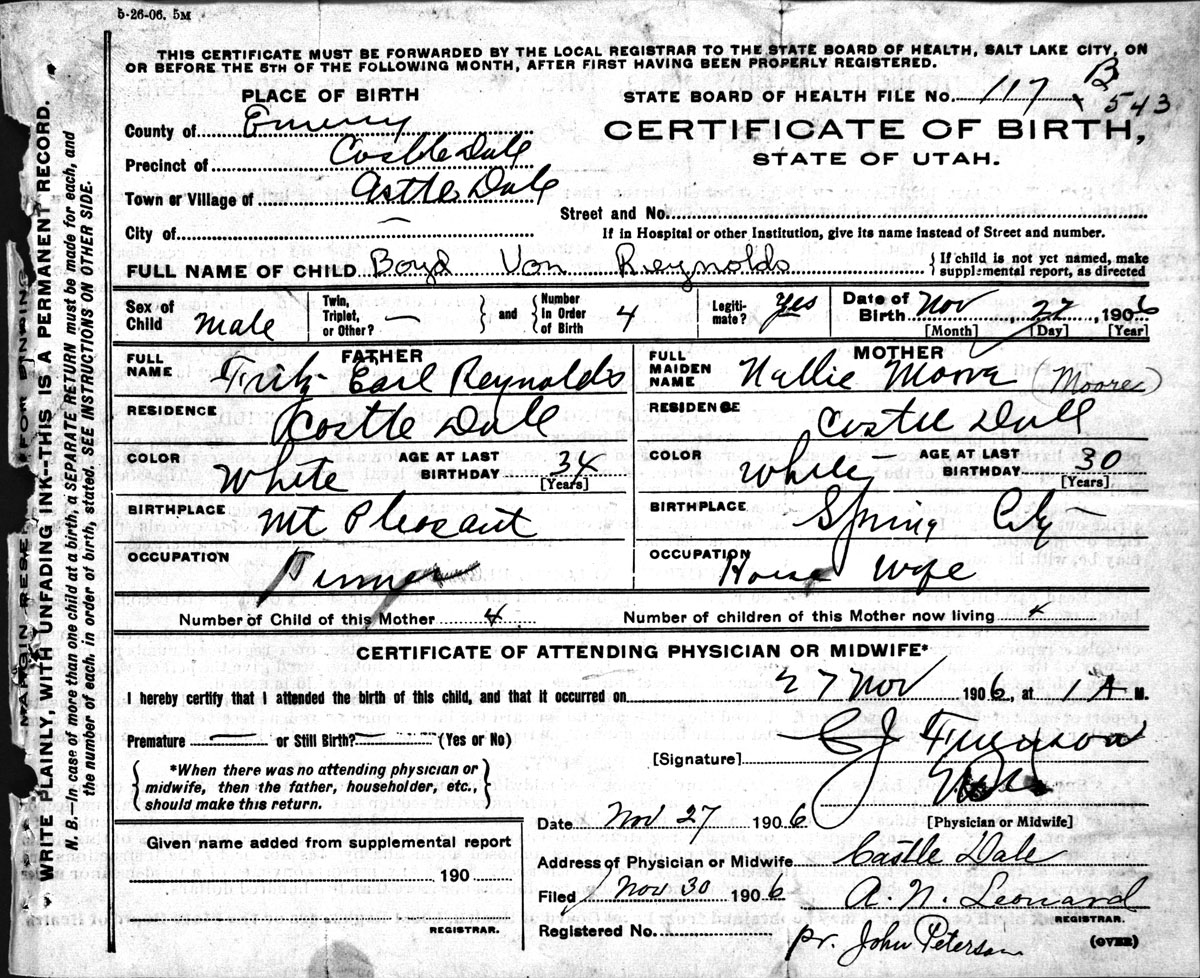 5-26-06. 5M
THIS CERTIFICATE MUST BE FORWARDED BY THE LOCAL REGISTRAR TO THE STATE BOARD OF HEALTH, SALT LAKE CITY, ON
OR BEFORE THE 5TH OF THE FOLLOWING MONTH, AFTER FIRST HAVING BEEN PROPERLY REGISTERED.
PLACE OF BIRTH
STATE BOARD OF HEALTH FILE No. 117 B 543
County of Emery
CERTIFICATE OF BIRTH,
STATE OF UTAH.
Precinct of Castle Dale
Town or Village of Castle Dale
Street and No.
City of —
If in Hospital or other Institution, give its name instead of Street and number.
FULL NAME OF CHILD Boyd Von Reynolds
{ If child is not yet named, make
supplemental report, as directed
Sex of Child Male
Twin, Triplet, or Other? — } and { Number in Order of Birth 4
Legiti-mate? Yes
Date of Birth Nov 27, 1906
[Month] [Day] [Year]
FATHER
FULL NAME Fritz Earl Reynolds
MOTHER
FULL MAIDEN NAME Nallie Moore (Moore)
RESIDENCE Castle Dale
RESIDENCE Castle Dale
COLOR White AGE AT LAST BIRTHDAY 34 [Years]
COLOR White AGE AT LAST BIRTHDAY 30 [Years]
BIRTHPLACE Mt Pleasant
BIRTHPLACE Spring City
OCCUPATION
OCCUPATION House Wife
Number of Child of this Mother 4
Number of children of this Mother now living 4
CERTIFICATE OF ATTENDING PHYSICIAN OR MIDWIFE*
I hereby certify that I attended the birth of this child, and that it occurred on 27 Nov 1906, at 1 A M.
Premature — or Still Birth? — (Yes or No)
[Signature] C J Ferguson
{ *When there was no attending physician or
midwife, then the father, householder, etc.,
should make this return. }
Date Nov 27 1906
[Physician or Midwife]
Given name added from supplemental report
190
REGISTRAR.
Address of Physician or Midwife Castle Dale
Filed Nov 30 1906 A. N. Leonard
REGISTRAR.
Registered No. pr. John Peterson
(OVER)
MARGIN RESE FOR BINDING
WRITE PLAINLY, WITH UNFADING INK--THIS IS A PERMANENT RECORD.
N. B.—In case of more than one child at a birth, a SEPARATE RETURN must be made for each, and
the number of each, in order of birth, stated. SEE INSTRUCTIONS ON OTHER SIDE.